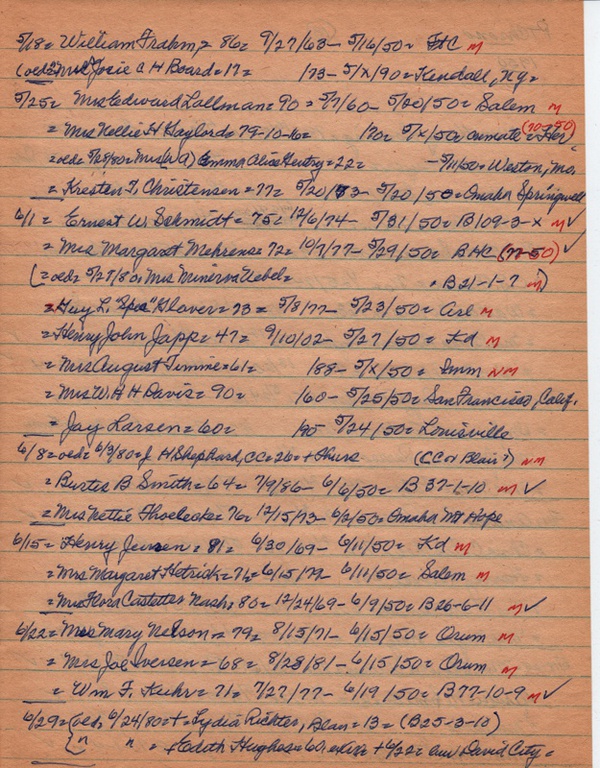 5/18 = William Frahm = 86 = 9/27/63 - 5/16/50 = HC M
(oed= Mrs Josie C H Board = 17 = 173 - 5/x/90 = Kendall, Ny =
5/25 = Mrs Edward Lallman = 90 = 5/7/60 - 5/20/50 = Salem M
= Mrs Nellie H Gaylord = 79-10-16 = 170 = 5/x/50 = cremate = Her (70-50)
= oed = 5/28/80 = Mrs (W A) Emma Alice Gentry = 22 = - 5/11/50 = Weston, Mo.
= Kresten T. Christensen = 77 = 5/20/73 - 5/20/50 = Omaha Springwell
6/1 = Ernest W. Schmidt = 75 = 12/6/74 - 5/31/50 = B109-3-x M ✓
= Mrs Margaret Mehrens = 72 = 10/7/77 - 5/29/50 = BHC (77-50) ✓
(= oed = 5/27/80 = Mrs Minerva Uebel = = B21-1-7 M)
= Guy L. "Spec" Glover = 73 = 5/8/77 - 5/23/50 = Arl M
= Henry John Japp = 47 = 9/10/02 - 5/27/50 = Kd M
= Mrs August Timme = 61 = 188 - 5/x/50 = Imm NM
= Mrs W. H H Davis = 90 = 160 - 5/25/50 = San Francisco, Calif.
= Jay Larsen = 60 = 190 5/24/50 = Louisville
6/8 = oed = 6/3/80 = J. H Shephard, CC = 26 = + Thurs (CC or Blair?) NM
= Burtis B Smith = 64 = 7/9/86 - 6/6/50 = B 37-1-10 M ✓
= Mrs Nettie = 76 = 12/15/73 - 6/2/50 = Omaha Mt Hope
6/15 = Henry Jensen = 81 = 6/30/69 - 6/11/50 = Kd M
= Mrs Margaret Hetrick = 71 = 6/15/79 - 6/11/50 = Salem M
= Mrs Flora Castetter Nash = 80 = 12/24/69 - 6/9/50 = B26-6-11 M ✓
6/22 = Mrs Mary Nelson = 79 = 8/15/71 - 6/15/50 = Orum M
= Mrs Joe Iversen = 68 = 8/28/81 - 6/15/50 = Orum M
= Wm F. Kuhr = 71 = 7/27/77 - 6/19/50 = B77-10-9 M ✓
6/29 = (oed, 6/24/80 = + = Lydia Richter, Blair = 13 = (B25-3-10)
" " = + Edith Hughes = 60 + 6/22 = David City =